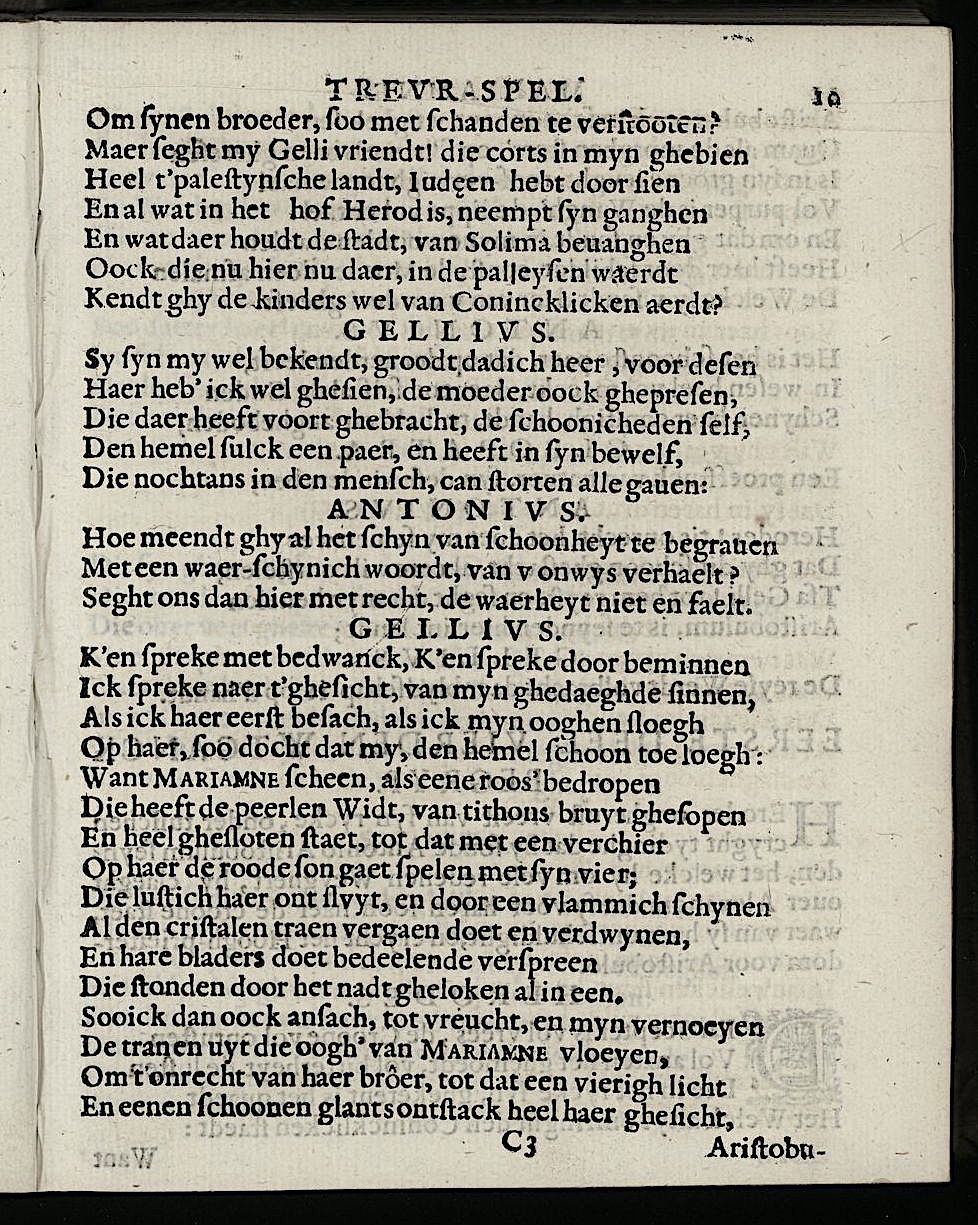 TREVR-SPEL. 10
Om ſynen broeder, ſoo met ſchanden te verſtōōten?
Maer ſeght my Gelli vriendt! die corts in myn ghebien
Heel t'paleſtynſche landt, Iudęen hebt door ſien
En al wat in het hof Herod is, neempt ſyn ganghen
En wat daer houdt de ſtadt, van Solima beuanghen
Oock die nu hier nu daer, in de palleyſen waerdt
Kendt ghy de kinders wel van Conincklicken aerdt?
GELLIVS.
Sy ſyn my wel bekendt, groodt dadich heer, voor deſen
Haer heb' ick wel gheſien, de moeder oock ghepreſen,
Die daer heeft voort ghebracht, de ſchoonicheden ſelf,
Den hemel ſulck een paer, en heeft in ſyn bewelf,
Die nochtans in den menſch, can ſtorten alle gauen:
ANTONIVS.
Hoe meendt ghy al het ſchyn van ſchoonheyt te begrauen
Met een waer-ſchynich woordt, van v onwys verhaelt?
Seght ons dan hier met recht, de waerheyt niet en faelt.
GELLIVS.
K'en ſpreke met bedwanck, K'en ſpreke door beminnen
Ick ſpreke naer t'gheſicht, van myn ghedaeghde ſinnen,
Als ick haer eerſt beſach, als ick myn ooghen ſloegh
Op haer, ſoo docht dat my, den hemel ſchoon toe loegh:
Want MARIAMNE ſcheen, als eene roos' bedropen
Die heeft de peerlen Widt, van tithons bruyt gheſopen
En heel gheſloten ſtaet, tot dat met een verchier
Op haer de roode ſon gaet ſpelen met ſyn vier;
Die luſtich haer ont ſlvyt, en door een vlammich ſchynen
Al den criſtalen traen vergaen doet en verdwynen,
En hare bladers doet bedeelende verſpreen
Die ſtonden door het nadt gheloken al in een.
Sooick dan oock anſach, tot vreucht, en myn vernoeyen
De tranen uyt die oogh' van MARIAMNE vloeyen,
Om t'onrecht van haer brôer, tot dat een vierigh licht
En eenen ſchoonen glants ontſtack heel haer gheſicht,
C3 Ariſtobu-